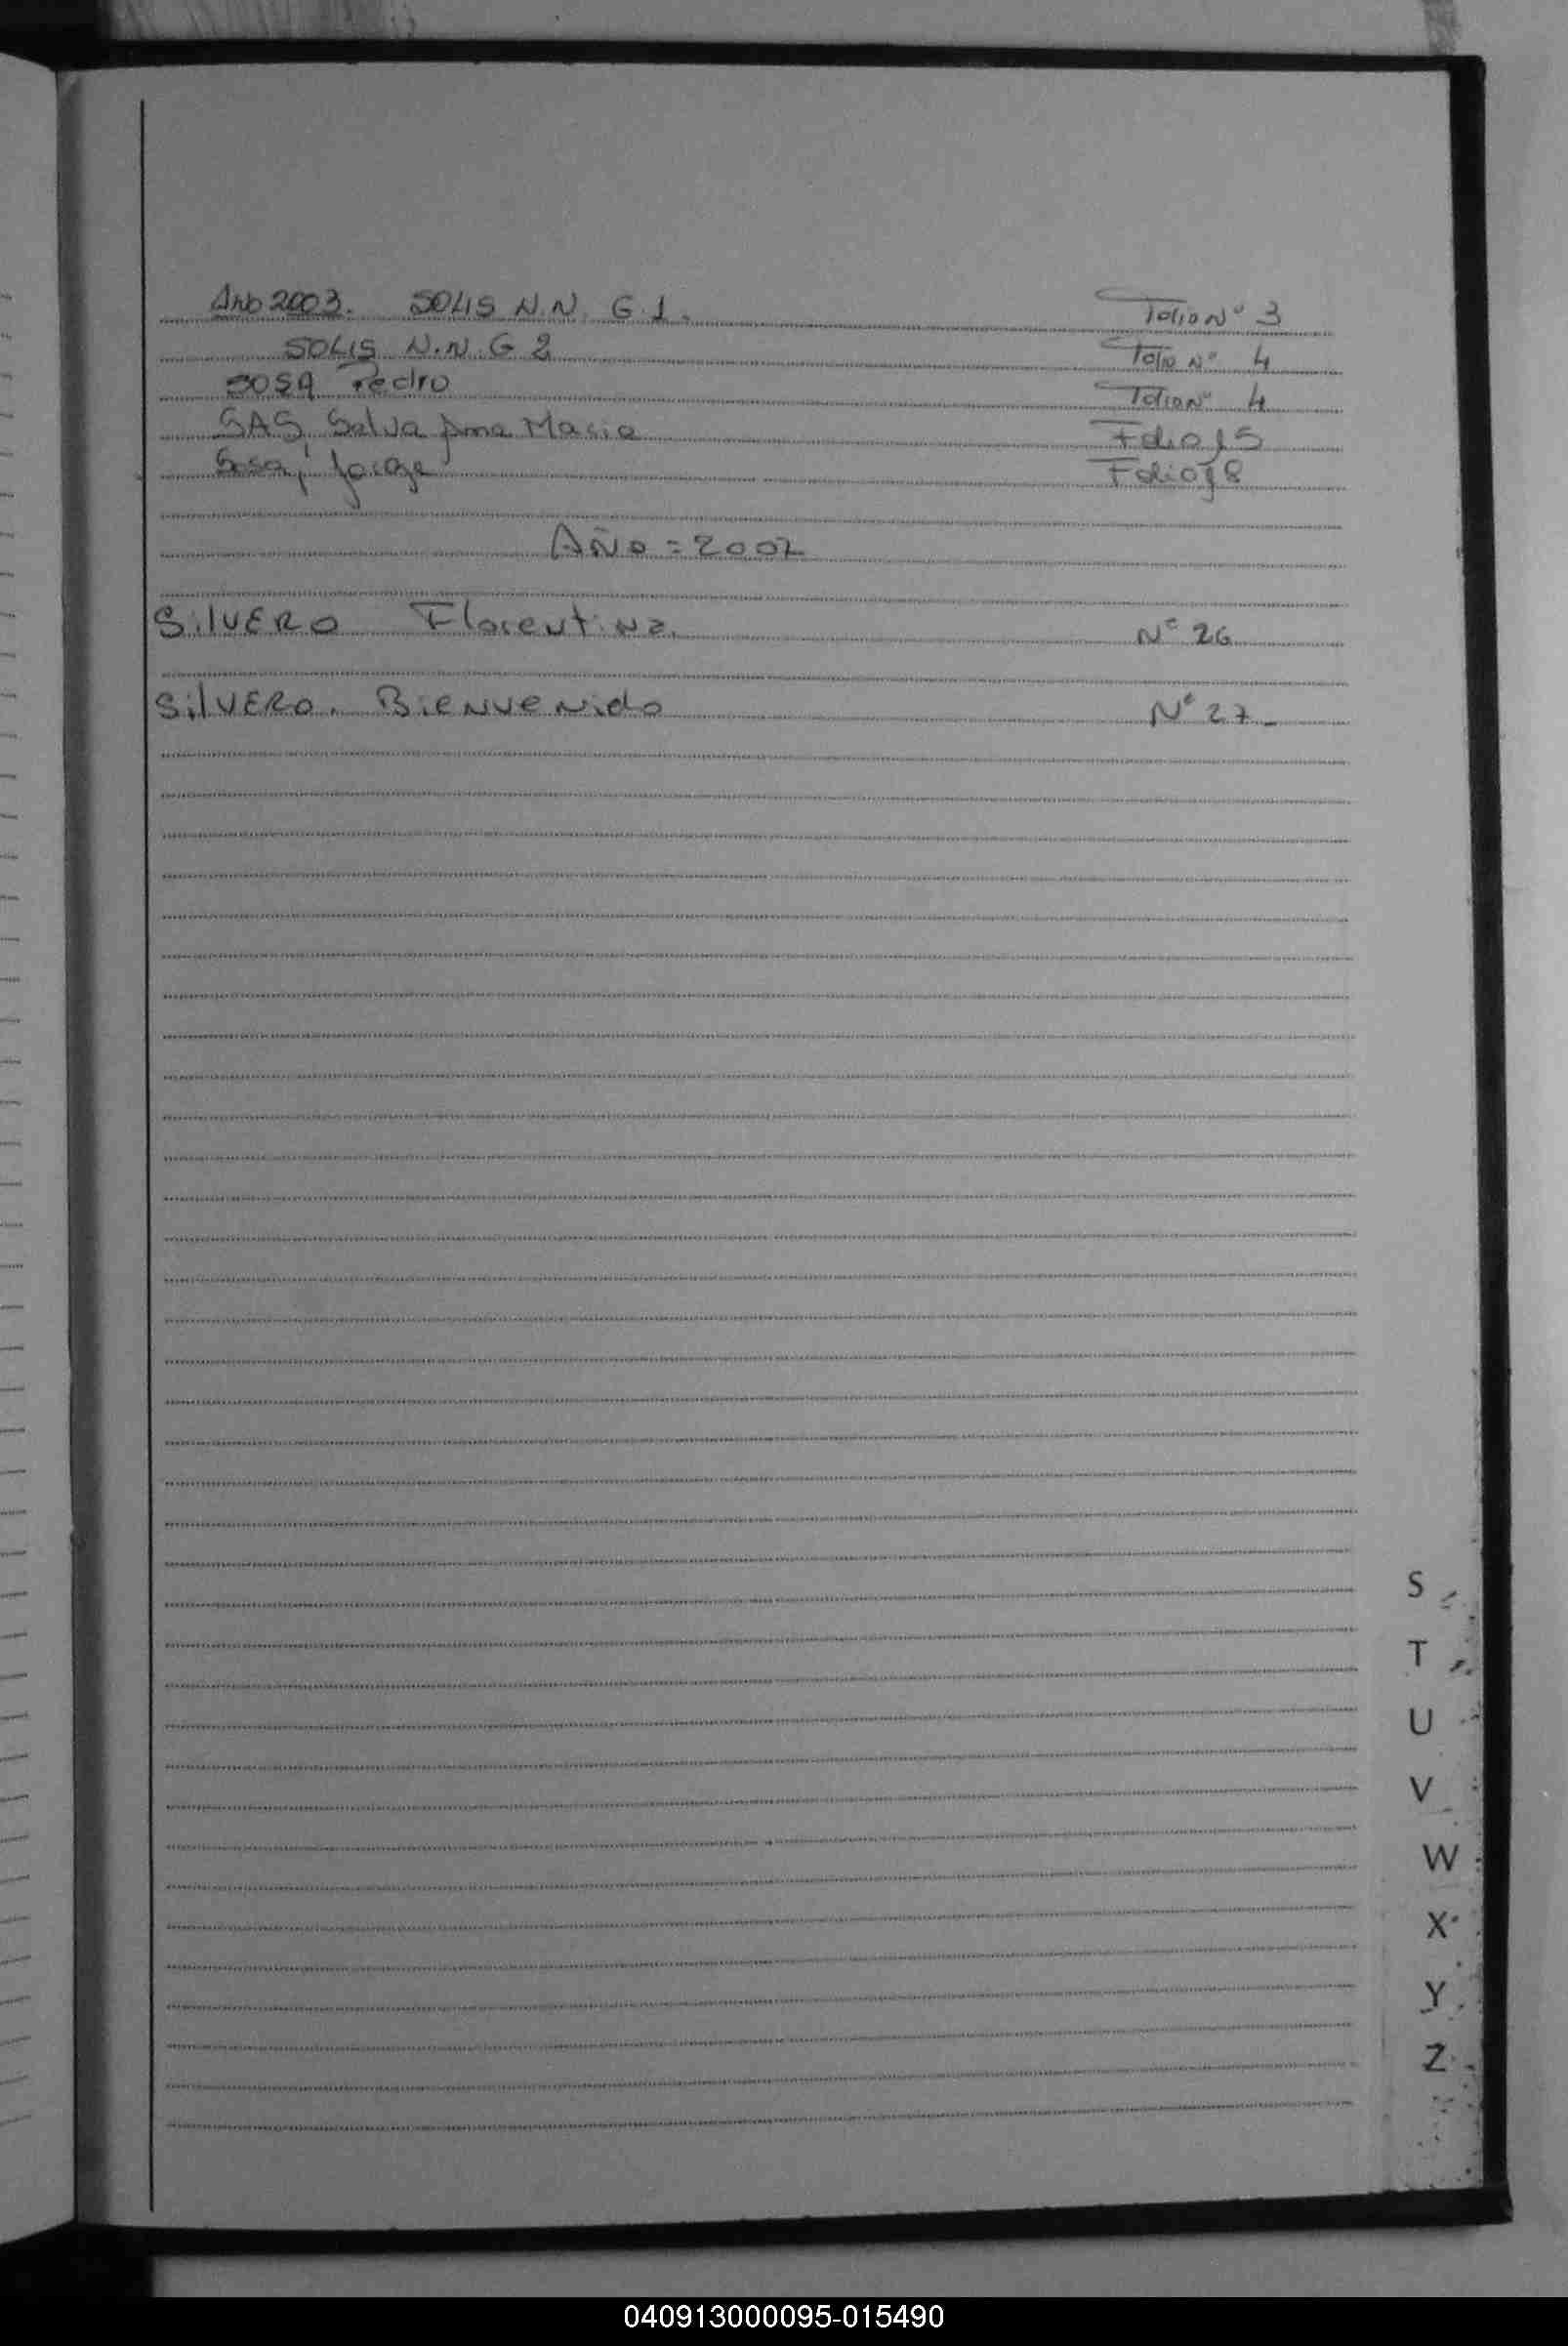 Año 2003. SOLIS N.N. G 1. Folio Nº 3
SOLIS N.N. G 2 Folio Nº 4
SOSA Pedro Folio Nº 4
SAS, Selva Ana Maria Folio 15
Sosa, Jorge Folio 18
AÑO = 2007
SilVERO Florentina. Nº 26
SilVERO. BiENVeNido Nº 27-
S
T
U
V
W
X
Y
Z
040913000095-015490